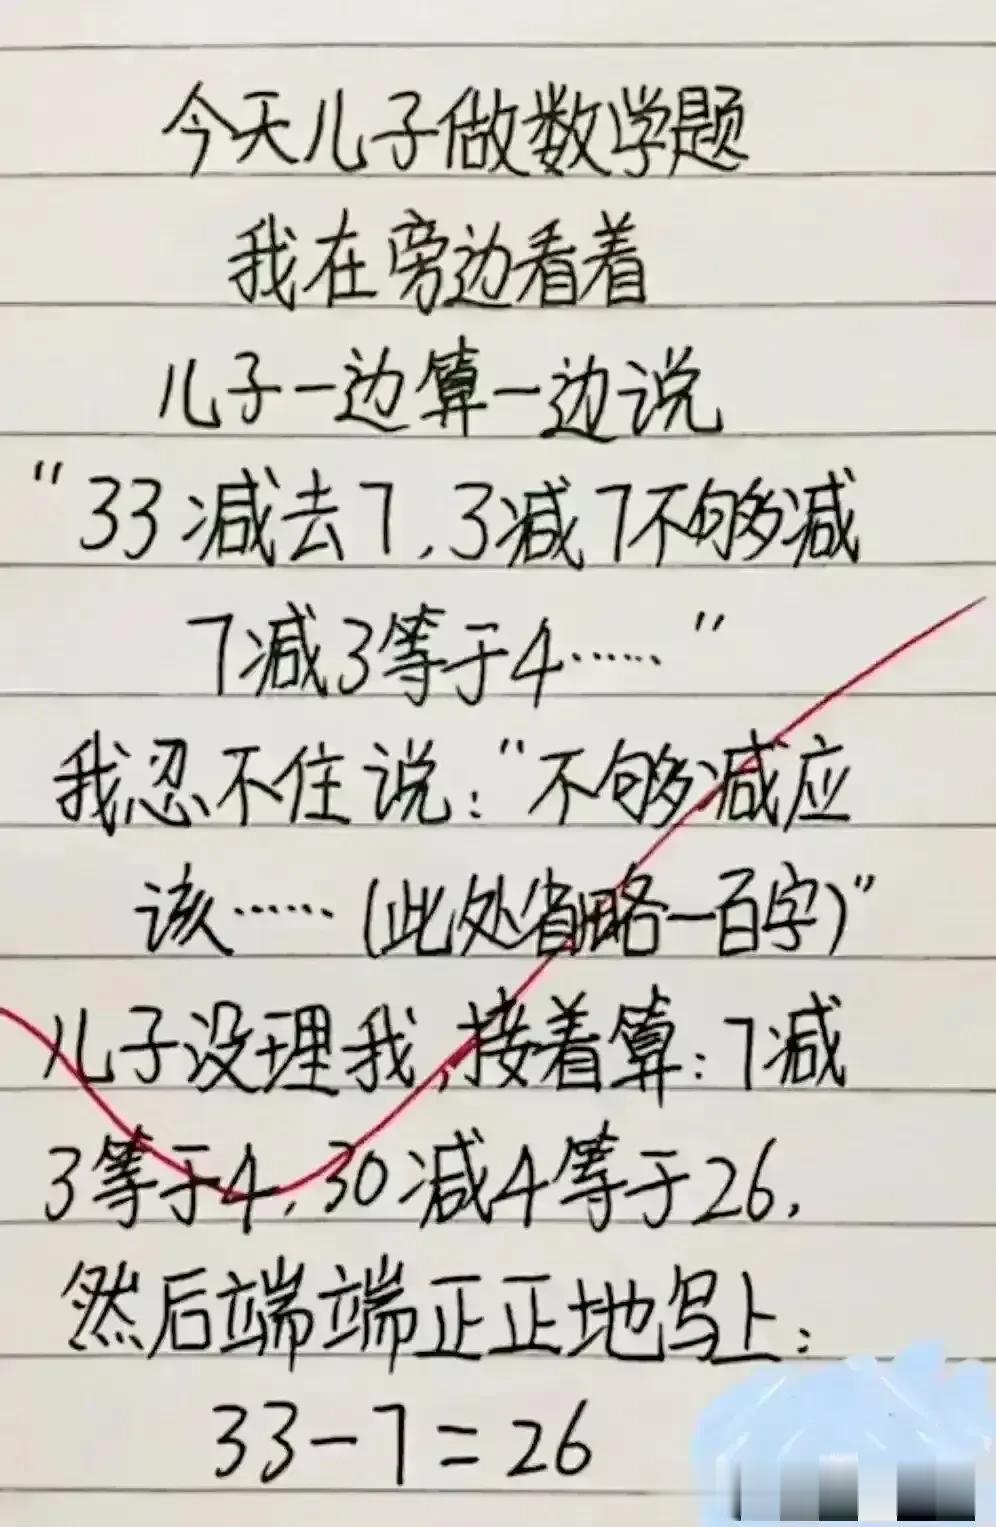 今天儿子做数学题
我在旁边看着
儿子一边算一边说
“33减去7,3减7不够减
7减3等于4……”
我忍不住说:“不够减应
该……(此处省略一百字)”
儿子没理我,接着算:7减
3等于4,30减4等于26,
然后端端正正地写上:
33-7=26